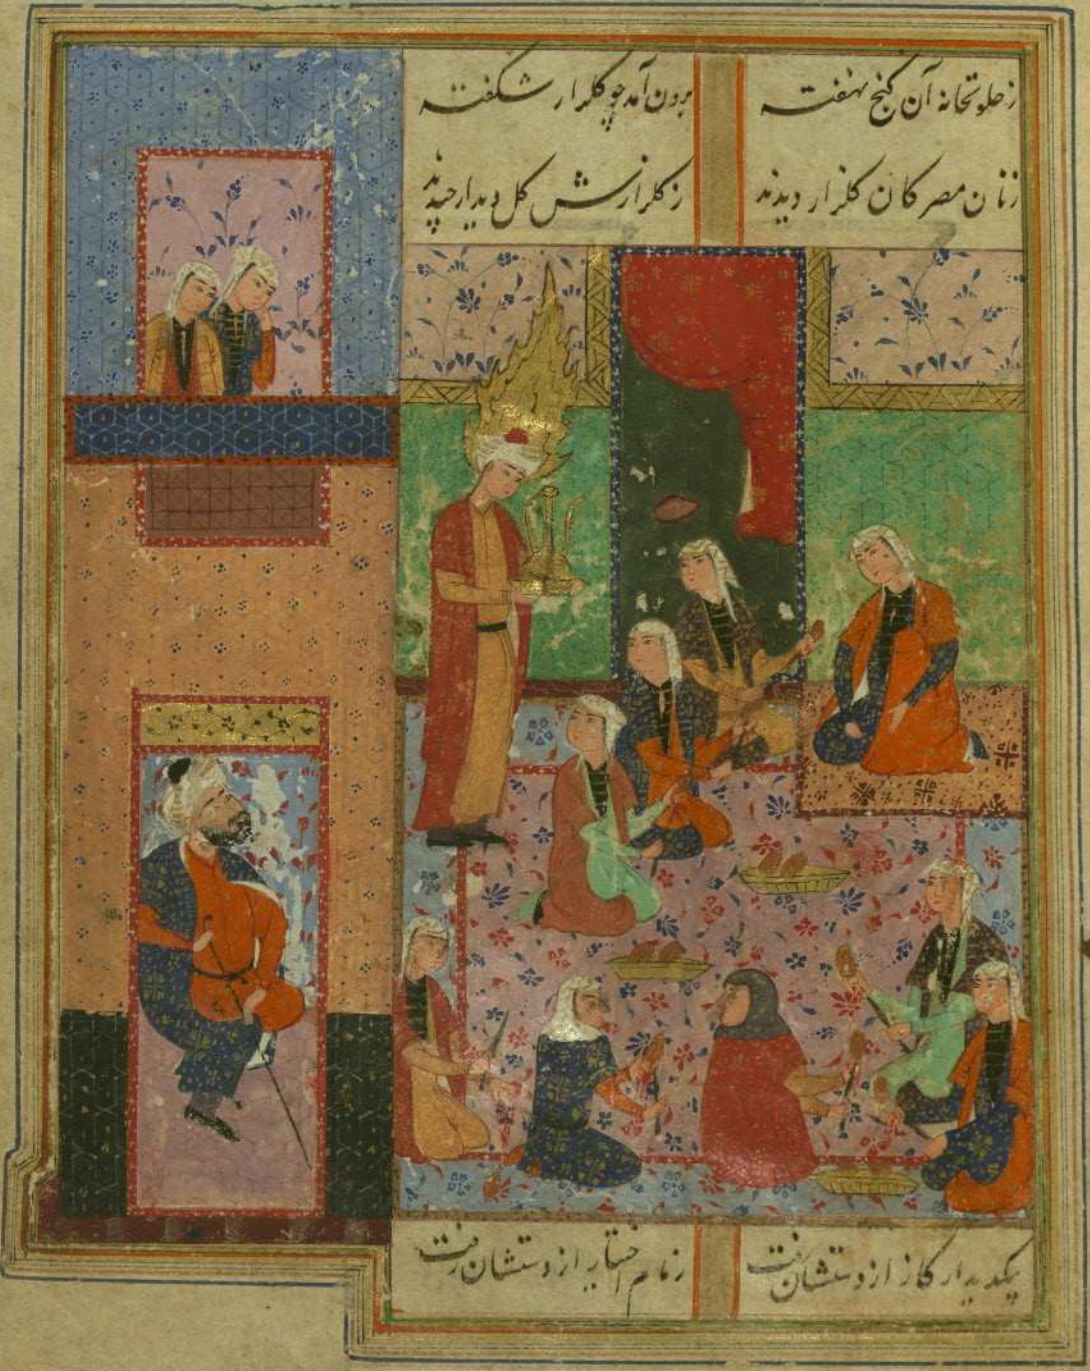 ز خلوتخانه آن کنج نهفته برون آمد چو گلزار شکفته
زنان مصر کان گلزار دیدند ز گلزارش گل دیدار چیدند
بیکدیدار کار از دستشان رفت زمام اختیار از دستشان رفت